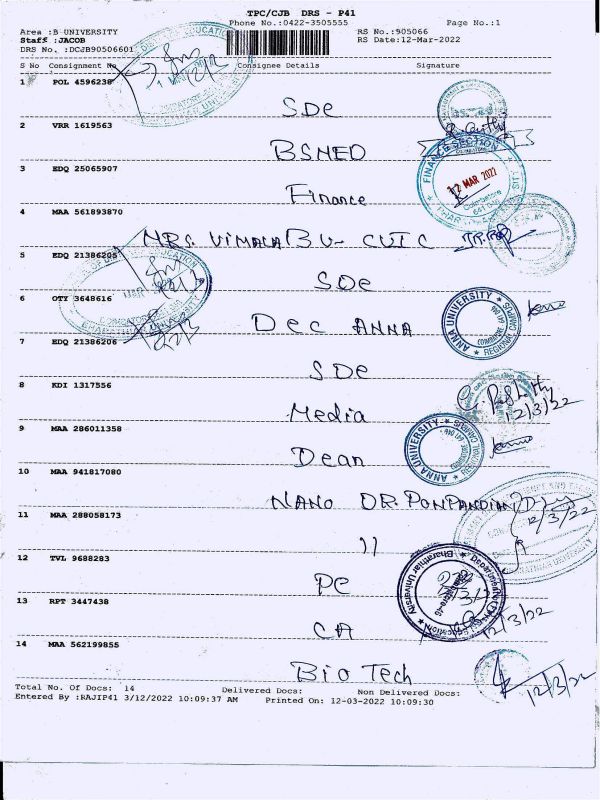 TPC/CJB DRS - P41
Phone No.:0422-3505555 Page No.:1
Area :B UNIVERSITY RS No.:905066
Staff :JACOB RS Date:12-Mar-2022
DRS No. :DCJB90506601
S No Consignment No Consignee Details Signature
1 POL 4596238
SDe
2 VRR 1619563
BSMED
3 EDQ 25065907
Finance
FINANCE SECTION
12 MAR 2022
Coimbatore
641 046
4 MAA 561893870
MRS. VIMALA BU- CUIC
5 EDQ 21386205
SDe
6 OTY 3648616
Dec ANNA
ANNA UNIVERSITY REGIONAL CAMPUS
7 EDQ 21386206
SDe
8 KDI 1317556
Media
12/3/22
9 MAA 286011358
Dean
ANNA UNIVERSITY REGIONAL CAMPUS
10 MAA 941817080
NANO DR. PONPANDIAN
12/3/22
11 MAA 288058173
11
12 TVL 9688283
PC
Bharathiar University
13 RPT 3447438
CA
12/3/22
14 MAA 562199855
Bio Tech
12/3/22
Total No. Of Docs: 14 Delivered Docs: Non Delivered Docs:
Entered By :RAJIP41 3/12/2022 10:09:37 AM Printed On: 12-03-2022 10:09:30